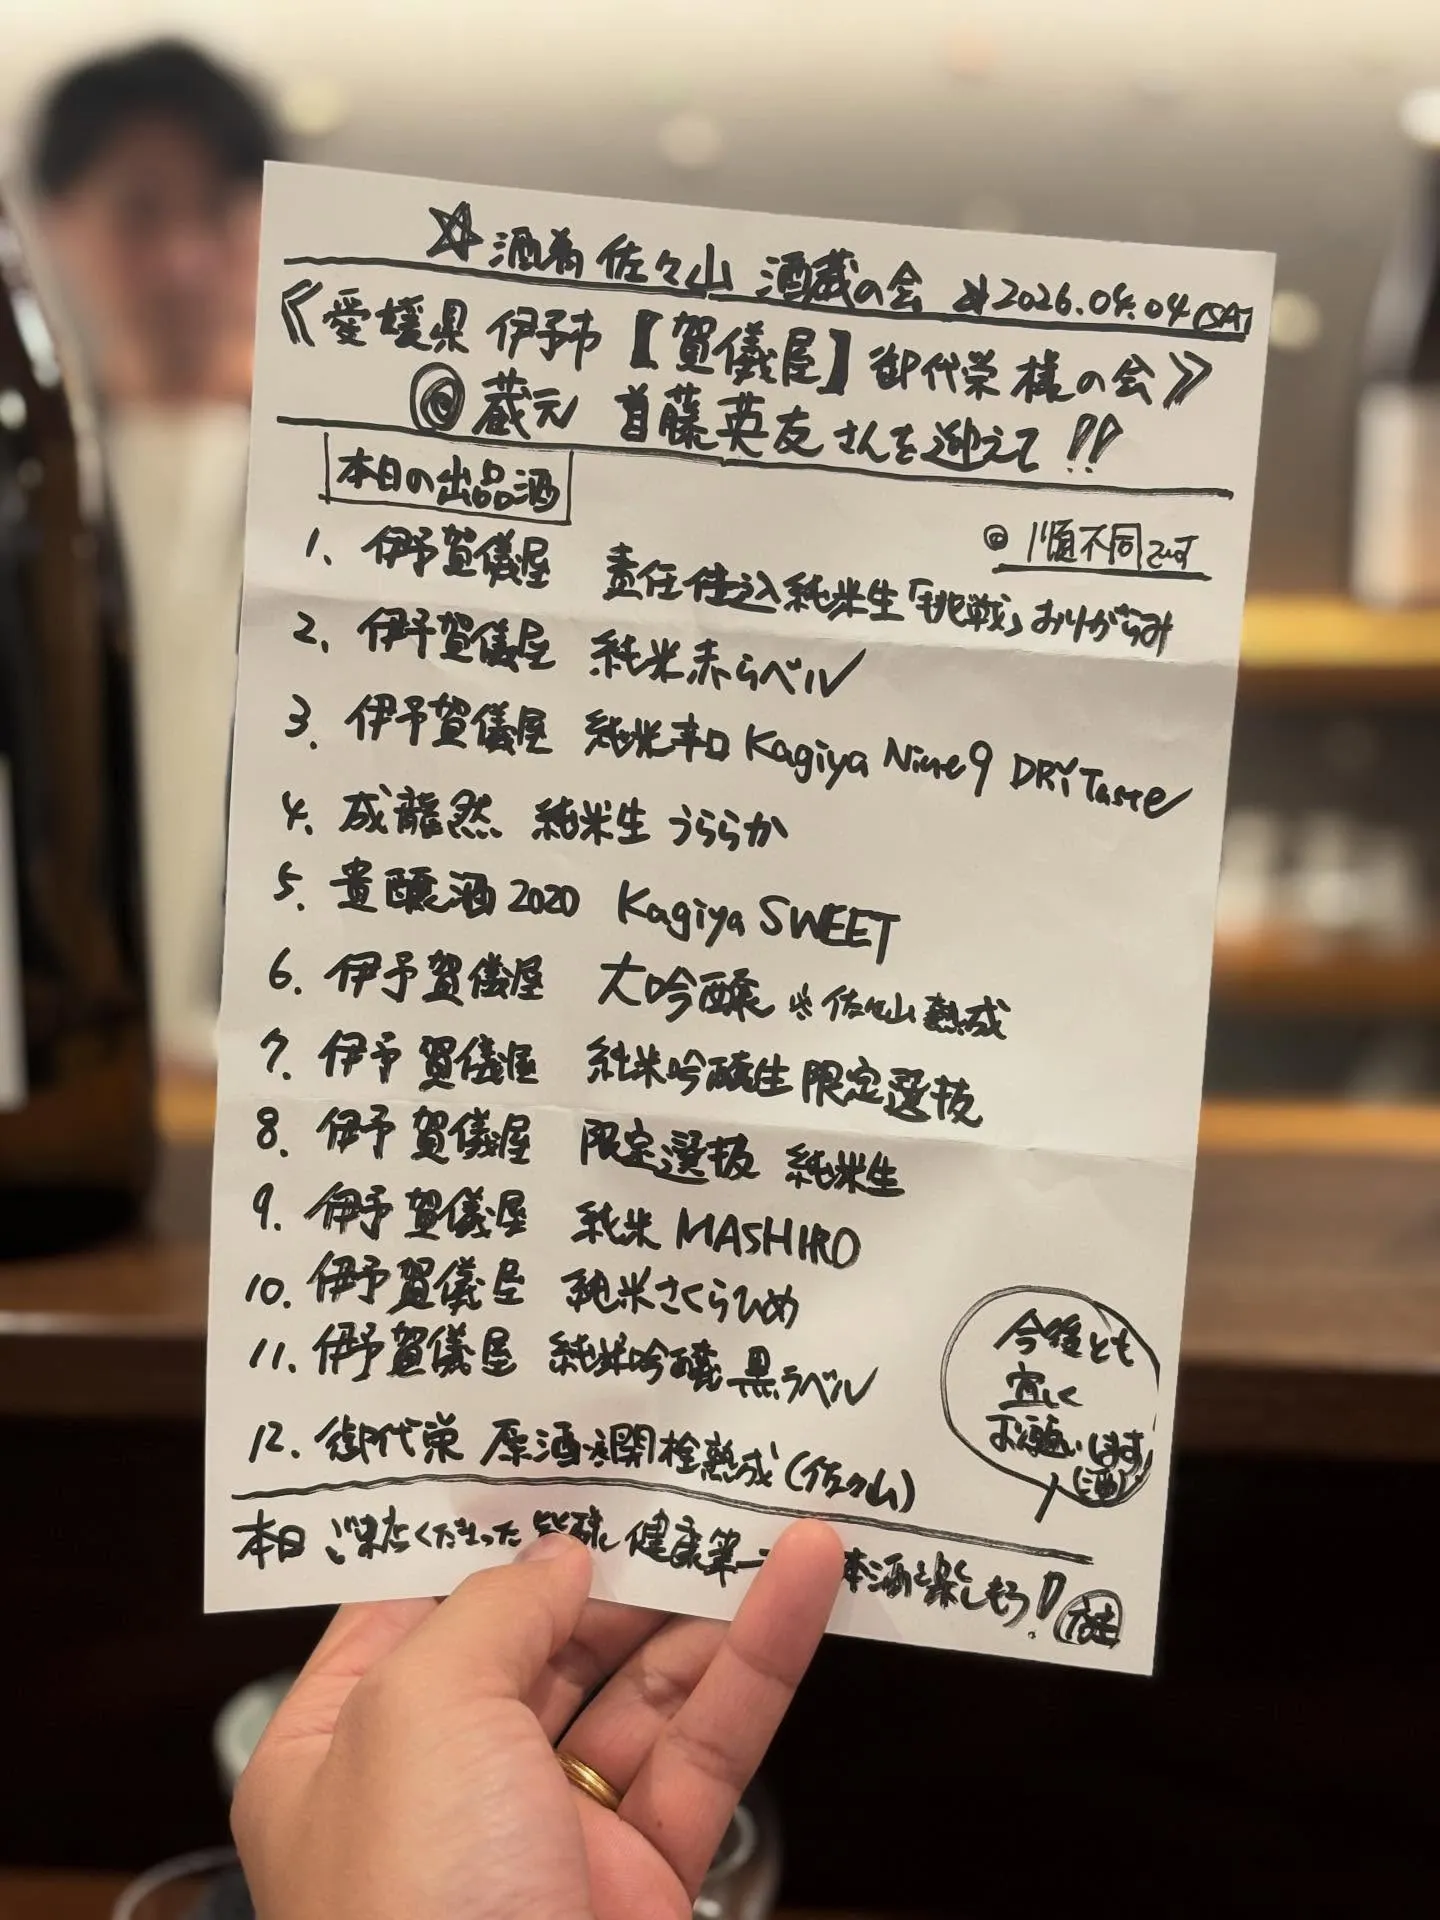 ☆酒肴 佐々山 酒蔵の会 ☆2026.04.04(SAT)
《愛媛県 伊予市【賀儀屋】御代栄 様の会》
◎蔵元 首藤英友さんを迎えて!!
本日の出品酒
◎順不同です
1. 伊予賀儀屋 責任仕込純米生「挑戦」おりがらみ
2. 伊予賀儀屋 純米赤ラベル
3. 伊予賀儀屋 純米辛口 Kagiya Nine9 DRY Taste
4. 成龍然 純米生 うららか
5. 貴醸酒2020 Kagiya SWEET
6. 伊予賀儀屋 大吟醸 ※佐々山熟成
7. 伊予賀儀屋 純米吟醸生 限定選抜
8. 伊予賀儀屋 限定選抜 純米生
9. 伊予賀儀屋 純米 MASHIRO
10. 伊予賀儀屋 純米さくらひめ
11. 伊予賀儀屋 純米吟醸 黒ラベル
12. 御代栄 原酒※開栓熟成(佐々山)
今後とも
宜しく
お願いします
本日ご来店くださった 健康第一 本酒を楽しもう!